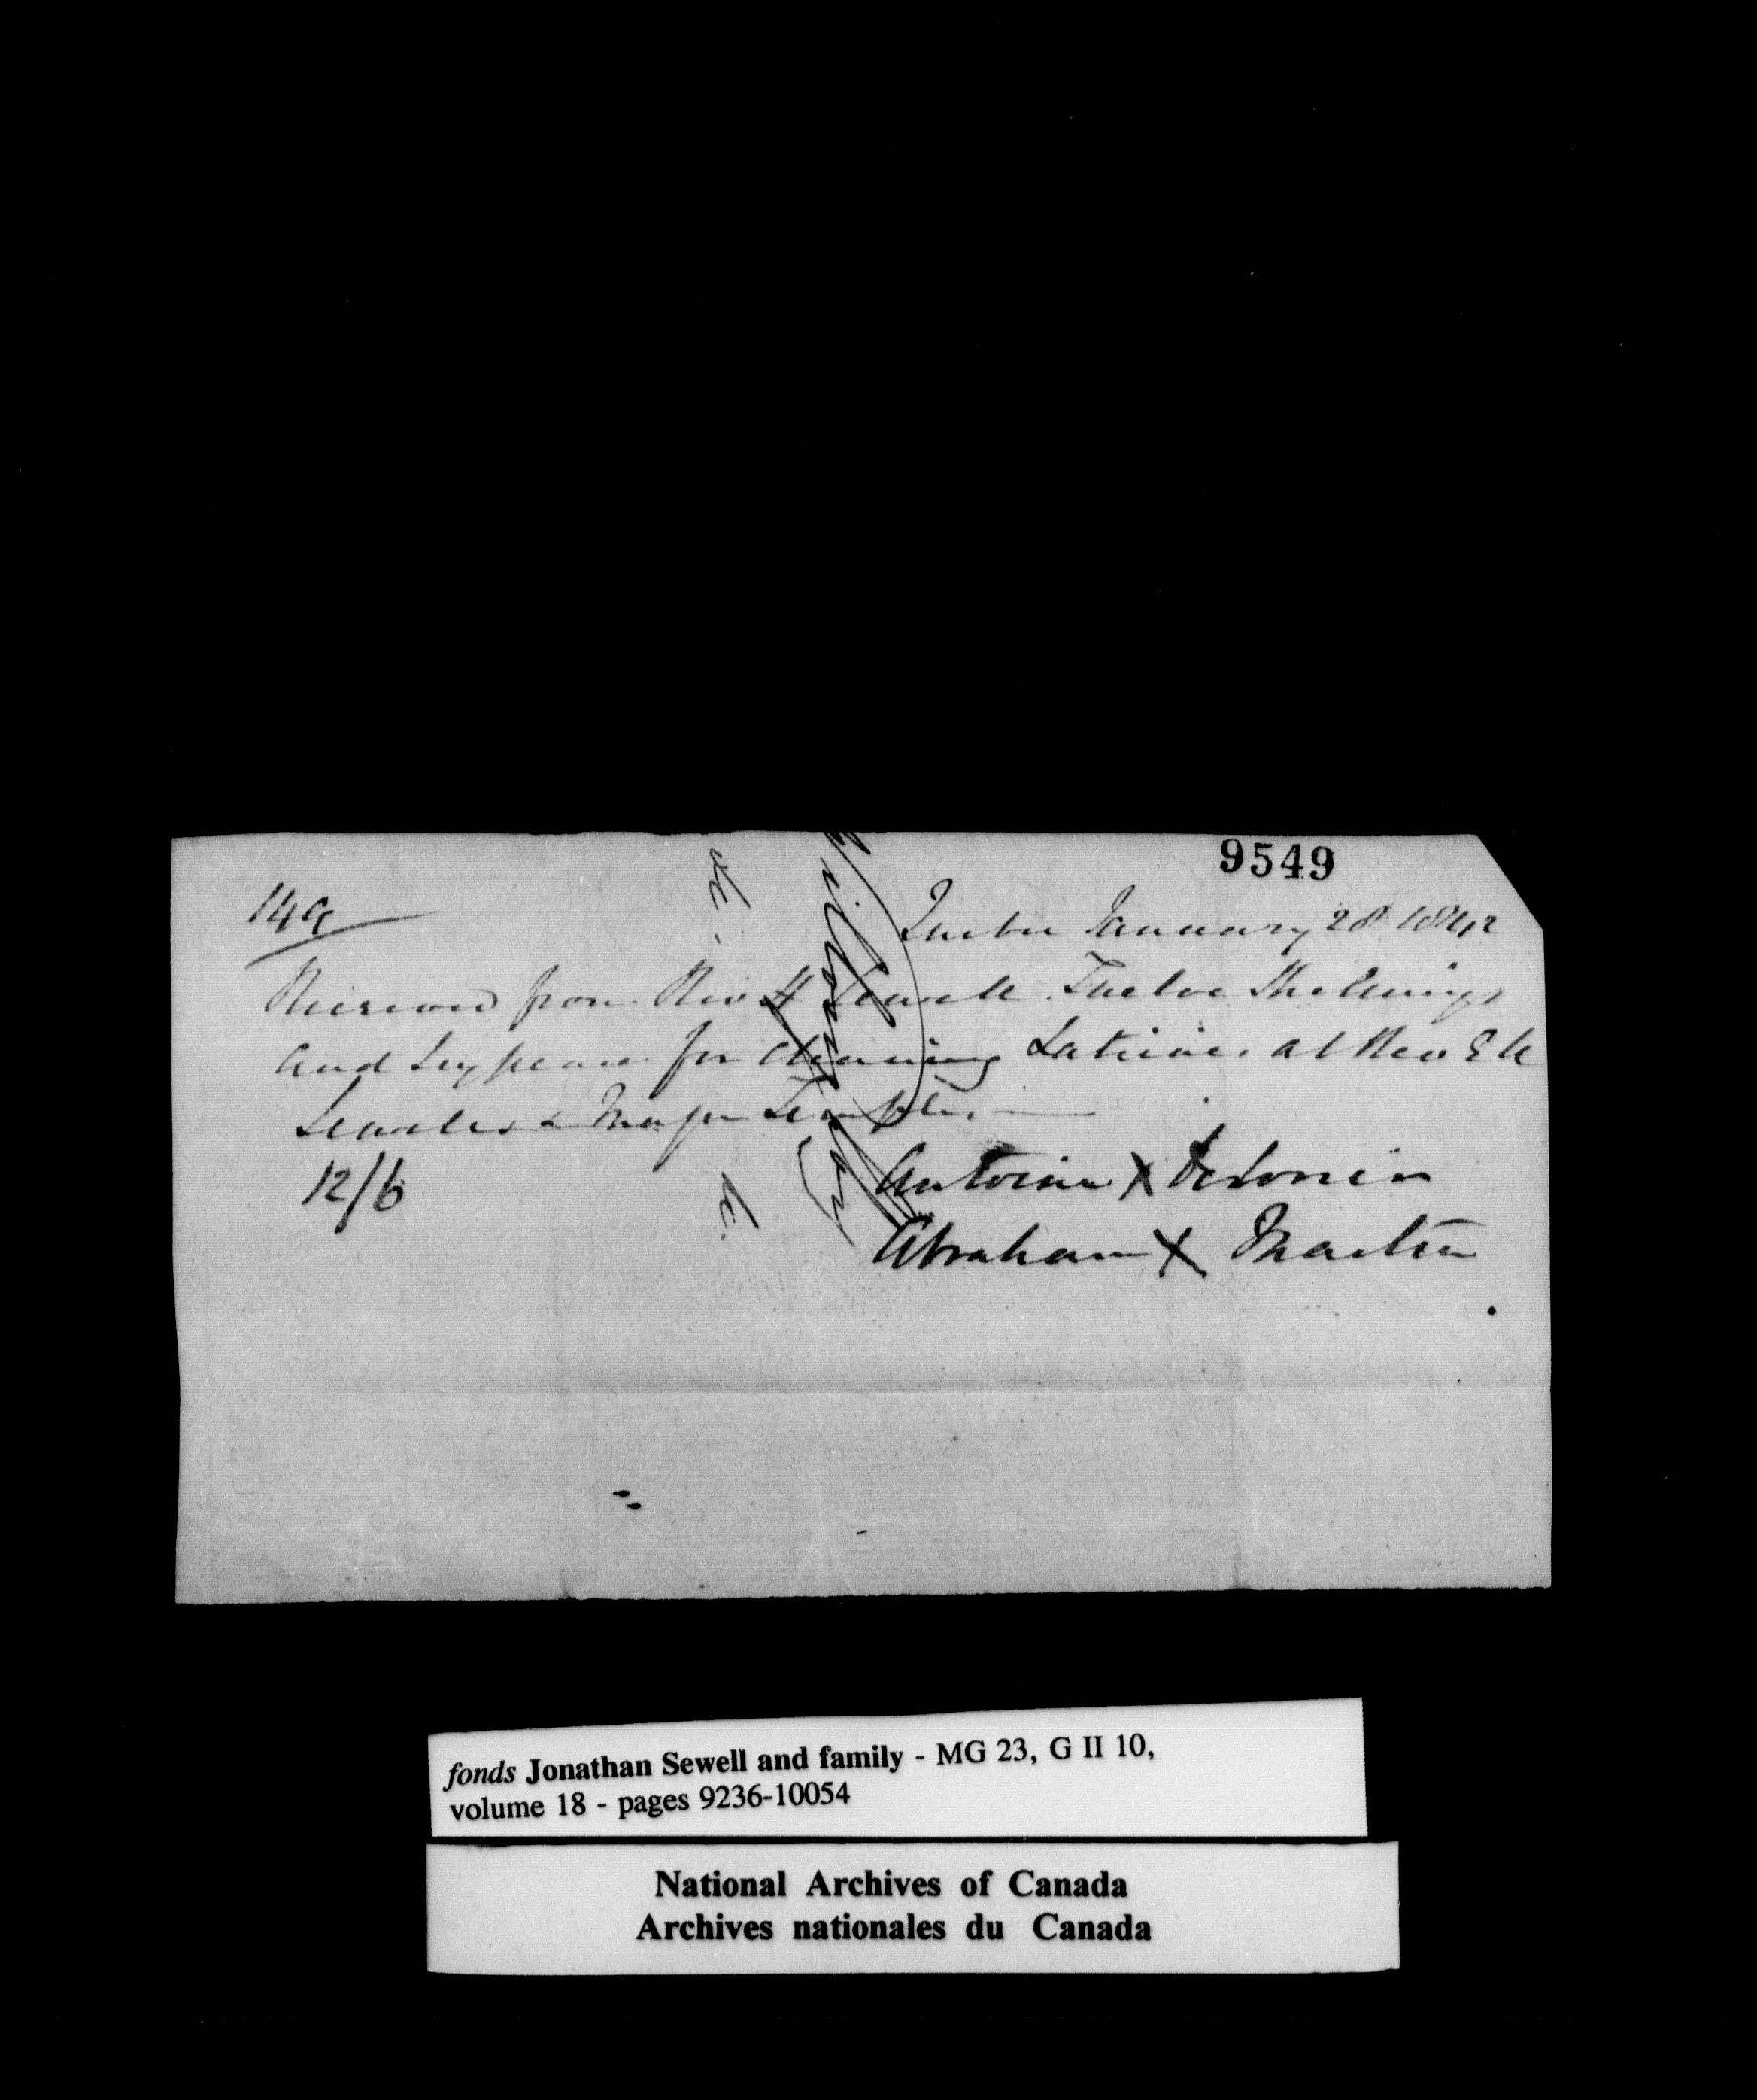 9549
149
Quebec January 28 1842
Received from Rev H Sewell Twelve Shillings
and Sixpence for cleaning Latrines at Rev E W
Sewells & Major Temples.
12/6
Antoine X
Abraham X Martin
fonds Jonathan Sewell and family - MG 23, G II 10,
volume 18 - pages 9236-10054
National Archives of Canada
Archives nationales du Canada